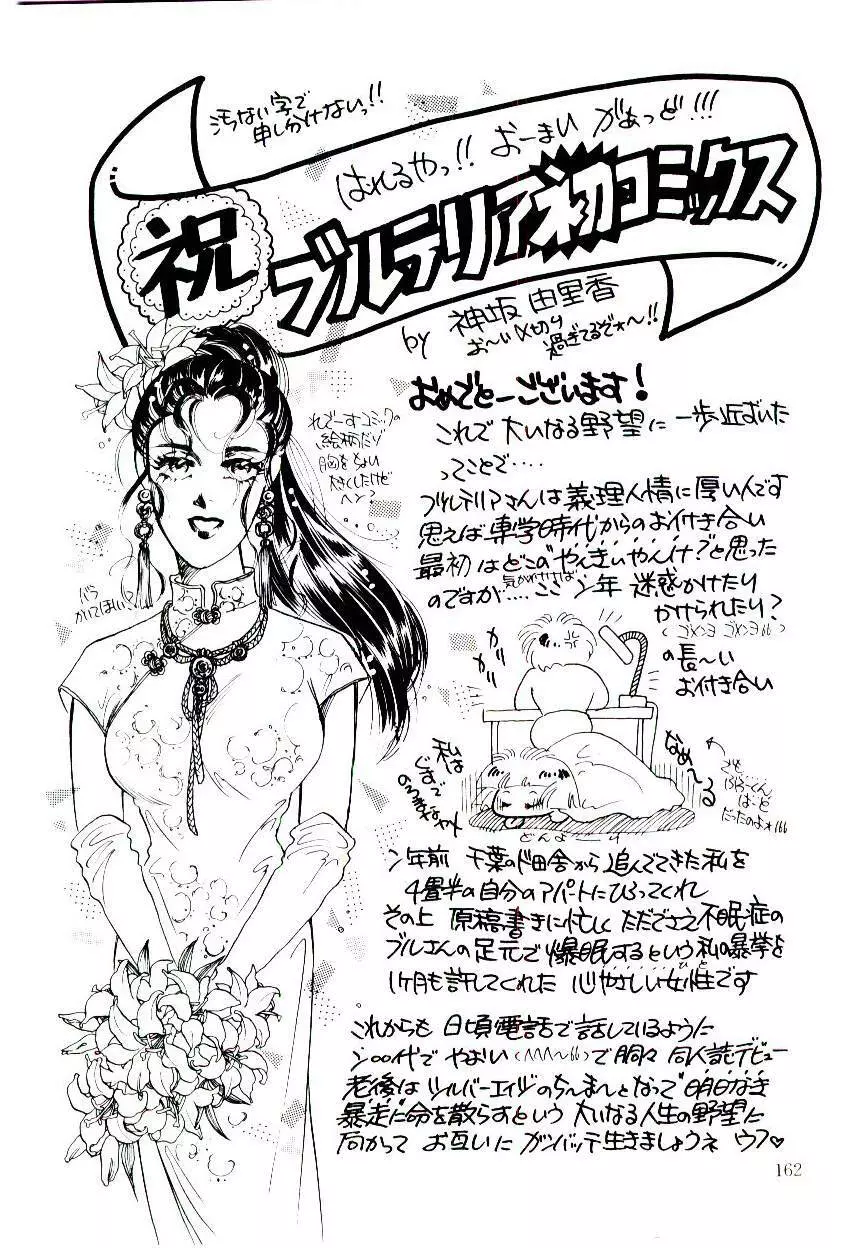 汚ない字で
申し分けないっ!!
はれるやっ!! おーまい があっど!!!
祝
ブルテリア初コミックス
by 神坂 由里香
お〜い〆切り
過ぎてるぞォ〜!!
おめでとーございます!
これで 大いなる野望に 一歩近ずいた
ってことで‥‥
ブルテリアさんは義理人情に厚い人です
思えば専学時代からのお付き合い
最初はどこの“やんきいやんけ?”と思った
のですが‥‥気がつけばここン年 迷惑かけたり
かけられたり?
(ゴメンヨ ゴメンヨ66)
の長〜い
お付き合い
れでーすコミックの
絵柄だゾ
胸をもない
大きくしたけど
ヘン?
バラ
かいてほしい?
ガリ
ガリ
なめ〜る
私は
どんよーり
だったのよォ66
ン年前 千葉のド田舎から追んできた私を
4畳半の自分のアパートにひろってくれ
その上 原稿書きに忙しく ただでさえ不眠症の
ブルさんの足元で爆眠するという私の暴挙を
1ヶ月も許してくれた 心やさしい女性です
ひと
これからも 日頃電話で話しているように
ン○○代で やよい(^^^〜66)で堂々 同人誌デビュー
老後は シルバーエイジのちーまーとなって“明日なき
暴走”に命を散らすという 大いなる人生の野望に
向かって お互いに ガンバッテ生きましょうネ ウフ♡
162